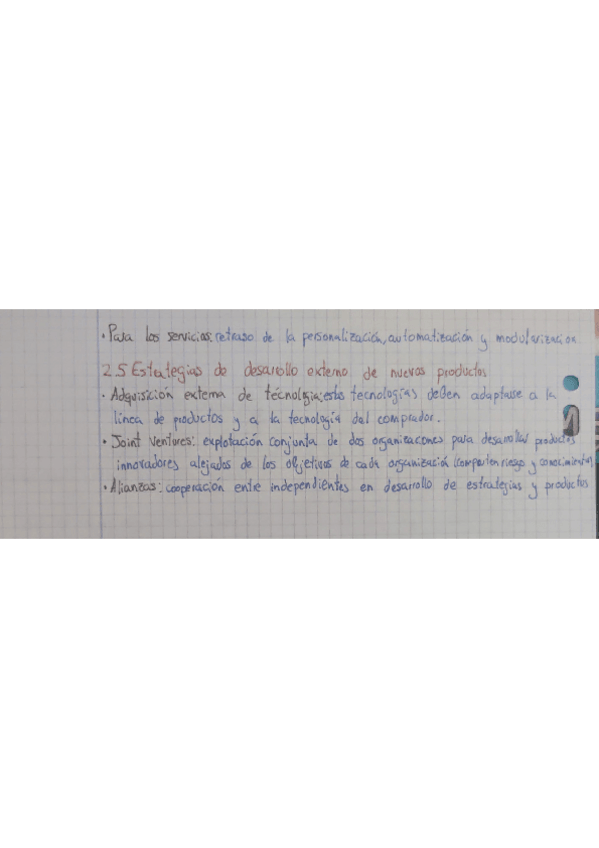 · Para los servicios: retraso de la personalización, automatización y modularización.
2.5 Estrategias de desarrollo externo de nuevos productos
· Adquisición externa de tecnología: estas tecnologías deben adaptarse a la
línea de productos y a la tecnología del comprador.
· Joint Ventures: explotación conjunta de dos organizaciones para desarrollar productos
innovadores alejados de los objetivos de cada organización (comparten riesgo y conocimientos)
· Alianzas: cooperación entre independientes en desarrollo de estrategias y productos